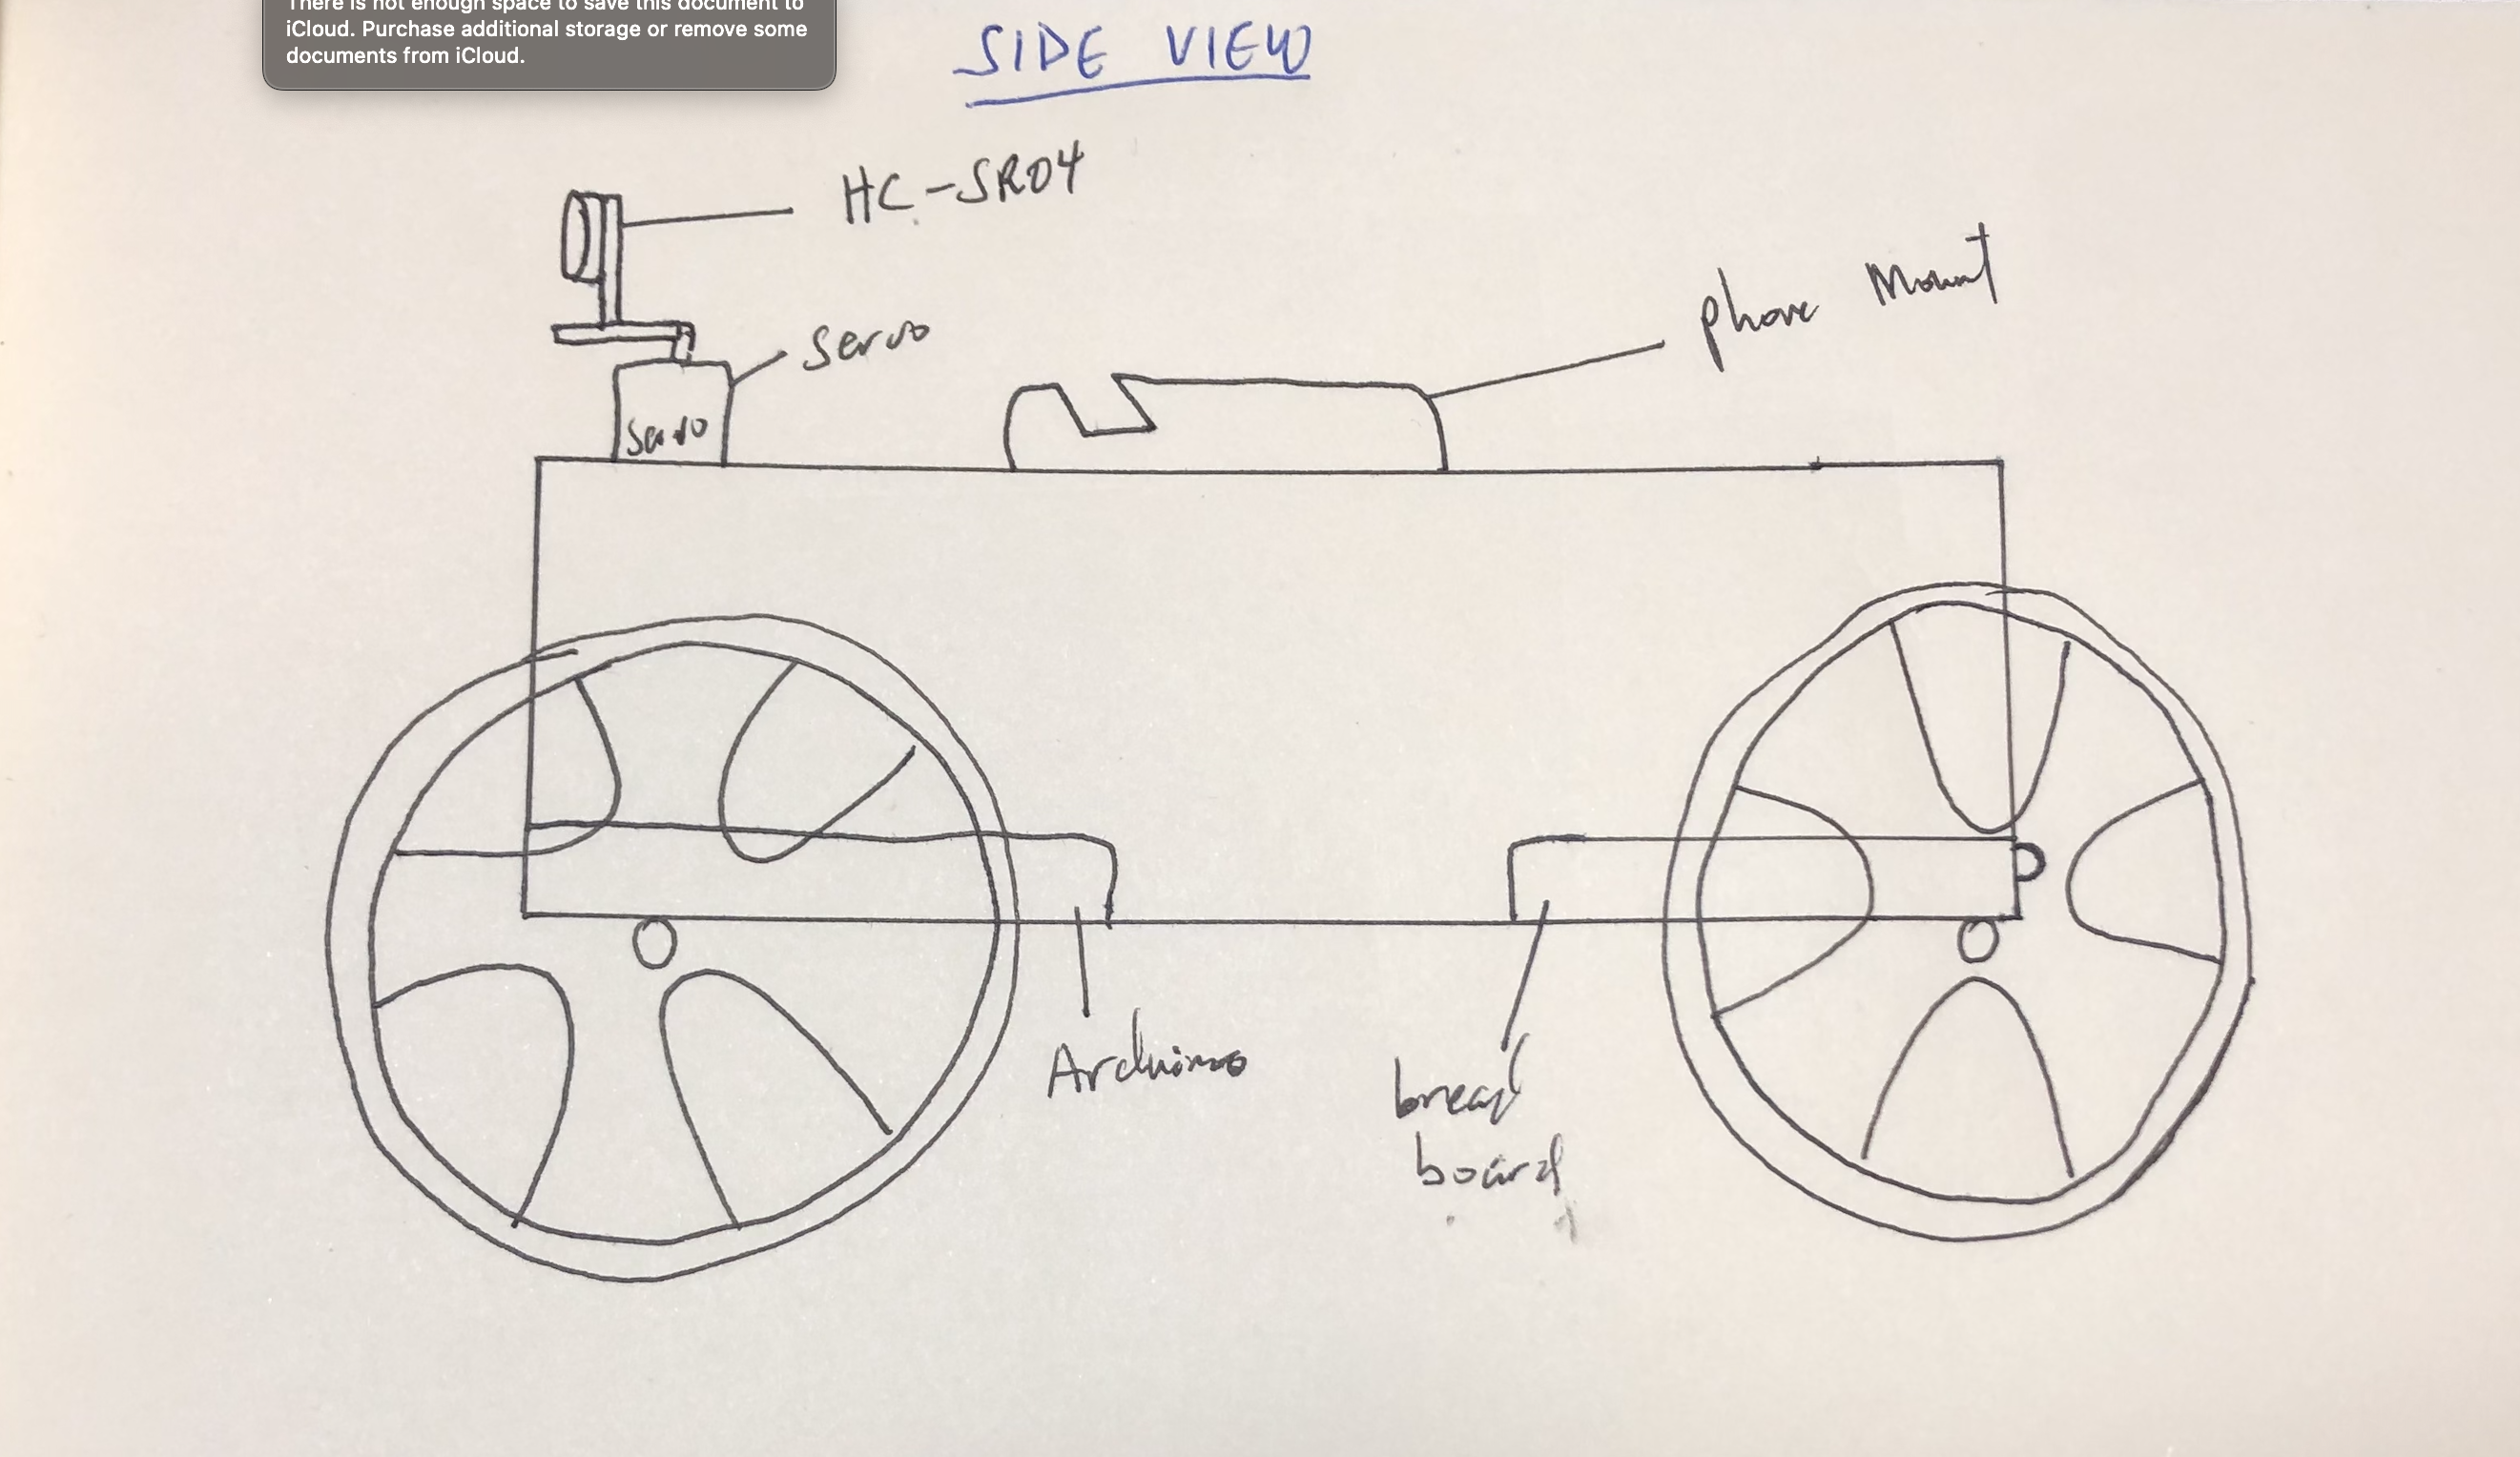 There is not enough space to save this document to
iCloud. Purchase additional storage or remove some
documents from iCloud.
SIDE VIEW
HC-SR04
phone Mount
servo
servo
Arduino
bread
board